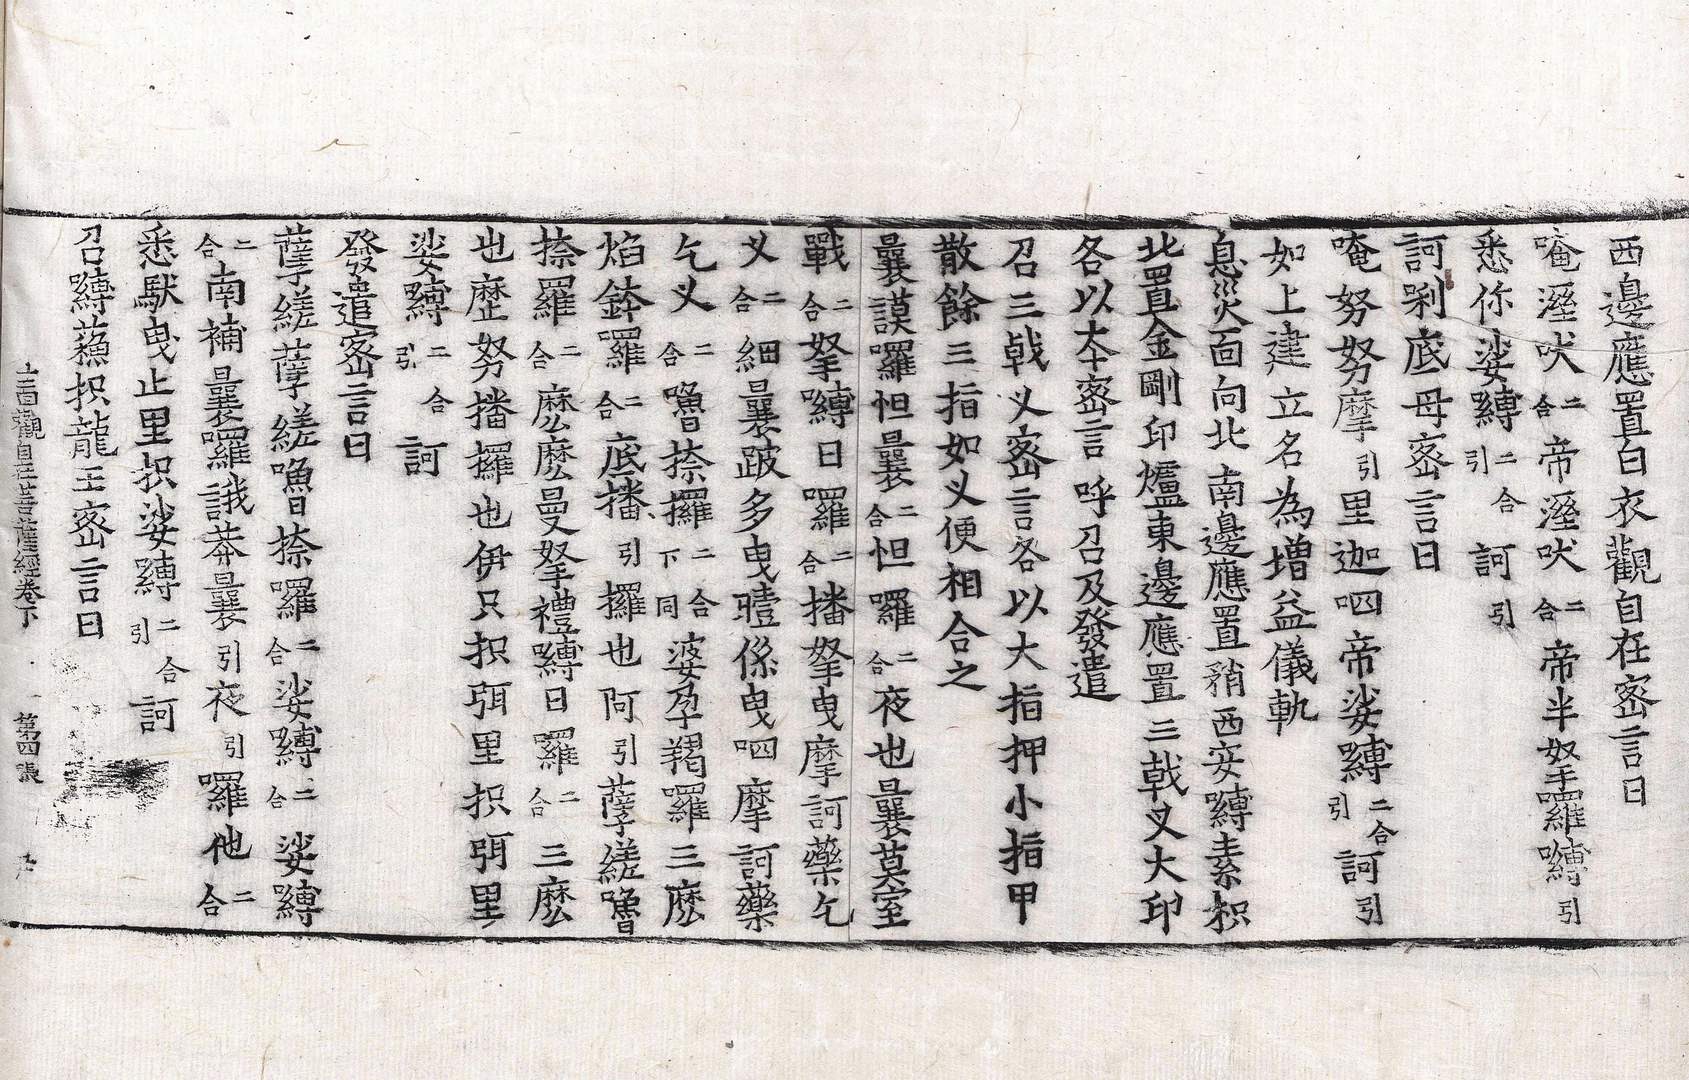 西邊應置白衣觀自在宻言曰
唵溼吠二合帝溼吠二合帝半拏囉嚩引
悉你娑嚩二合引訶引
訶剎底母宻言曰
唵努努摩引里迦呬帝娑嚩二合引訶引
如上建立名為增益儀軌
息災面向北南邊應置矟西安嚩素枳
北置金剛印爐東邊應置三戟叉大印
各以本宻言呼召及發遣
召三戟叉宻言各以大指押小指甲
散餘三指如叉便相合之
曩謨囉怛曩二合怛囉二合夜也曩莫室
戰二合拏嚩日囉二合播拏曳摩訶藥乞
叉二合細曩跛多曳曀係曳呬摩訶藥
乞叉二合嚕捺攞二合下同婆孕羯囉三麽
焰鉢囉二合底播引攞也阿引薩孕縒嚕
捺羅二合麽麽曼拏禮嚩日羅二合三麽
也麽努播攞也伊只枳弭里枳弭里
娑嚩二合引訶
發遣宻言曰
薩孕縒薩孕縒嚕捺囉二合娑嚩二合娑嚩
二合南補曩囉誐莽曩引夜引囉他二合
悉馱曳止里枳娑嚩二合引訶
召嚩蘓枳龍王宻言曰
十一面觀自在菩薩經卷下 第四張